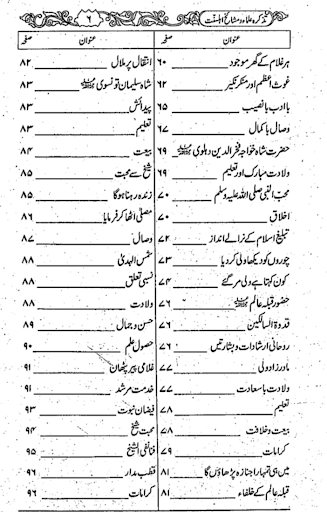 تذکرہ علماء و مشائخ اہلسنت
۶
عنوان صفحہ
ہر غلام کے گھر موجود ۶۰
غوث اعظم اور منکر نکیر ۶۲
باادب بانصیب ۶۵
وصال باکمال ۶۷
حضرت شاہ خواجہ فخر الدین دہلوی ۶۹
ولادت مبارک اور تعلیم ۶۹
محب النبی صلی اللہ علیہ وسلم ۷۰
اخلاق ۷۰
تبلیغ اسلام کے نرالے انداز ۷۲
چوروں کو دیکھا ولی کر دیا ۷۳
کون کہتا ہے ولی مر گئے ۷۴
حضور قبلہ عالم ۷۶
قدوۃ السالکین ۷۶
روحانی ارشادات و بشارتیں ۷۶
مادر زاد ولی ۷۷
ولادت با سعادت ۷۷
تعلیم ۷۸
بیعت و خلافت ۷۸
کرامات ۷۹
میں ہی تمہارا جنازہ پڑھاؤں گا ۸۱
قبلہ عالم کے خلفاء ۸۱
عنوان صفحہ
انتقال پر ملال ۸۲
شاہ سلیمان تونسوی ۸۳
پیدائش ۸۳
تعلیم ۸۳
بیعت ۸۴
شیخ سے محبت ۸۵
زندہ رہنا ہوگا ۸۵
مصلیٰ اٹھا کر فرمایا ۸۶
وصال ۸۷
شمس الہدیٰ ۸۸
نسبی تعلق ۸۸
ولادت ۸۸
حسن و جمال ۸۹
حصول علم ۹۰
غلامی پیر پٹھان ۹۱
خدمت مرشد ۹۱
فیضان نبوت ۹۳
محبت شیخ ۹۴
فنافی الشیخ ۹۵
قطب مدار ۹۶
کرامات ۹۶